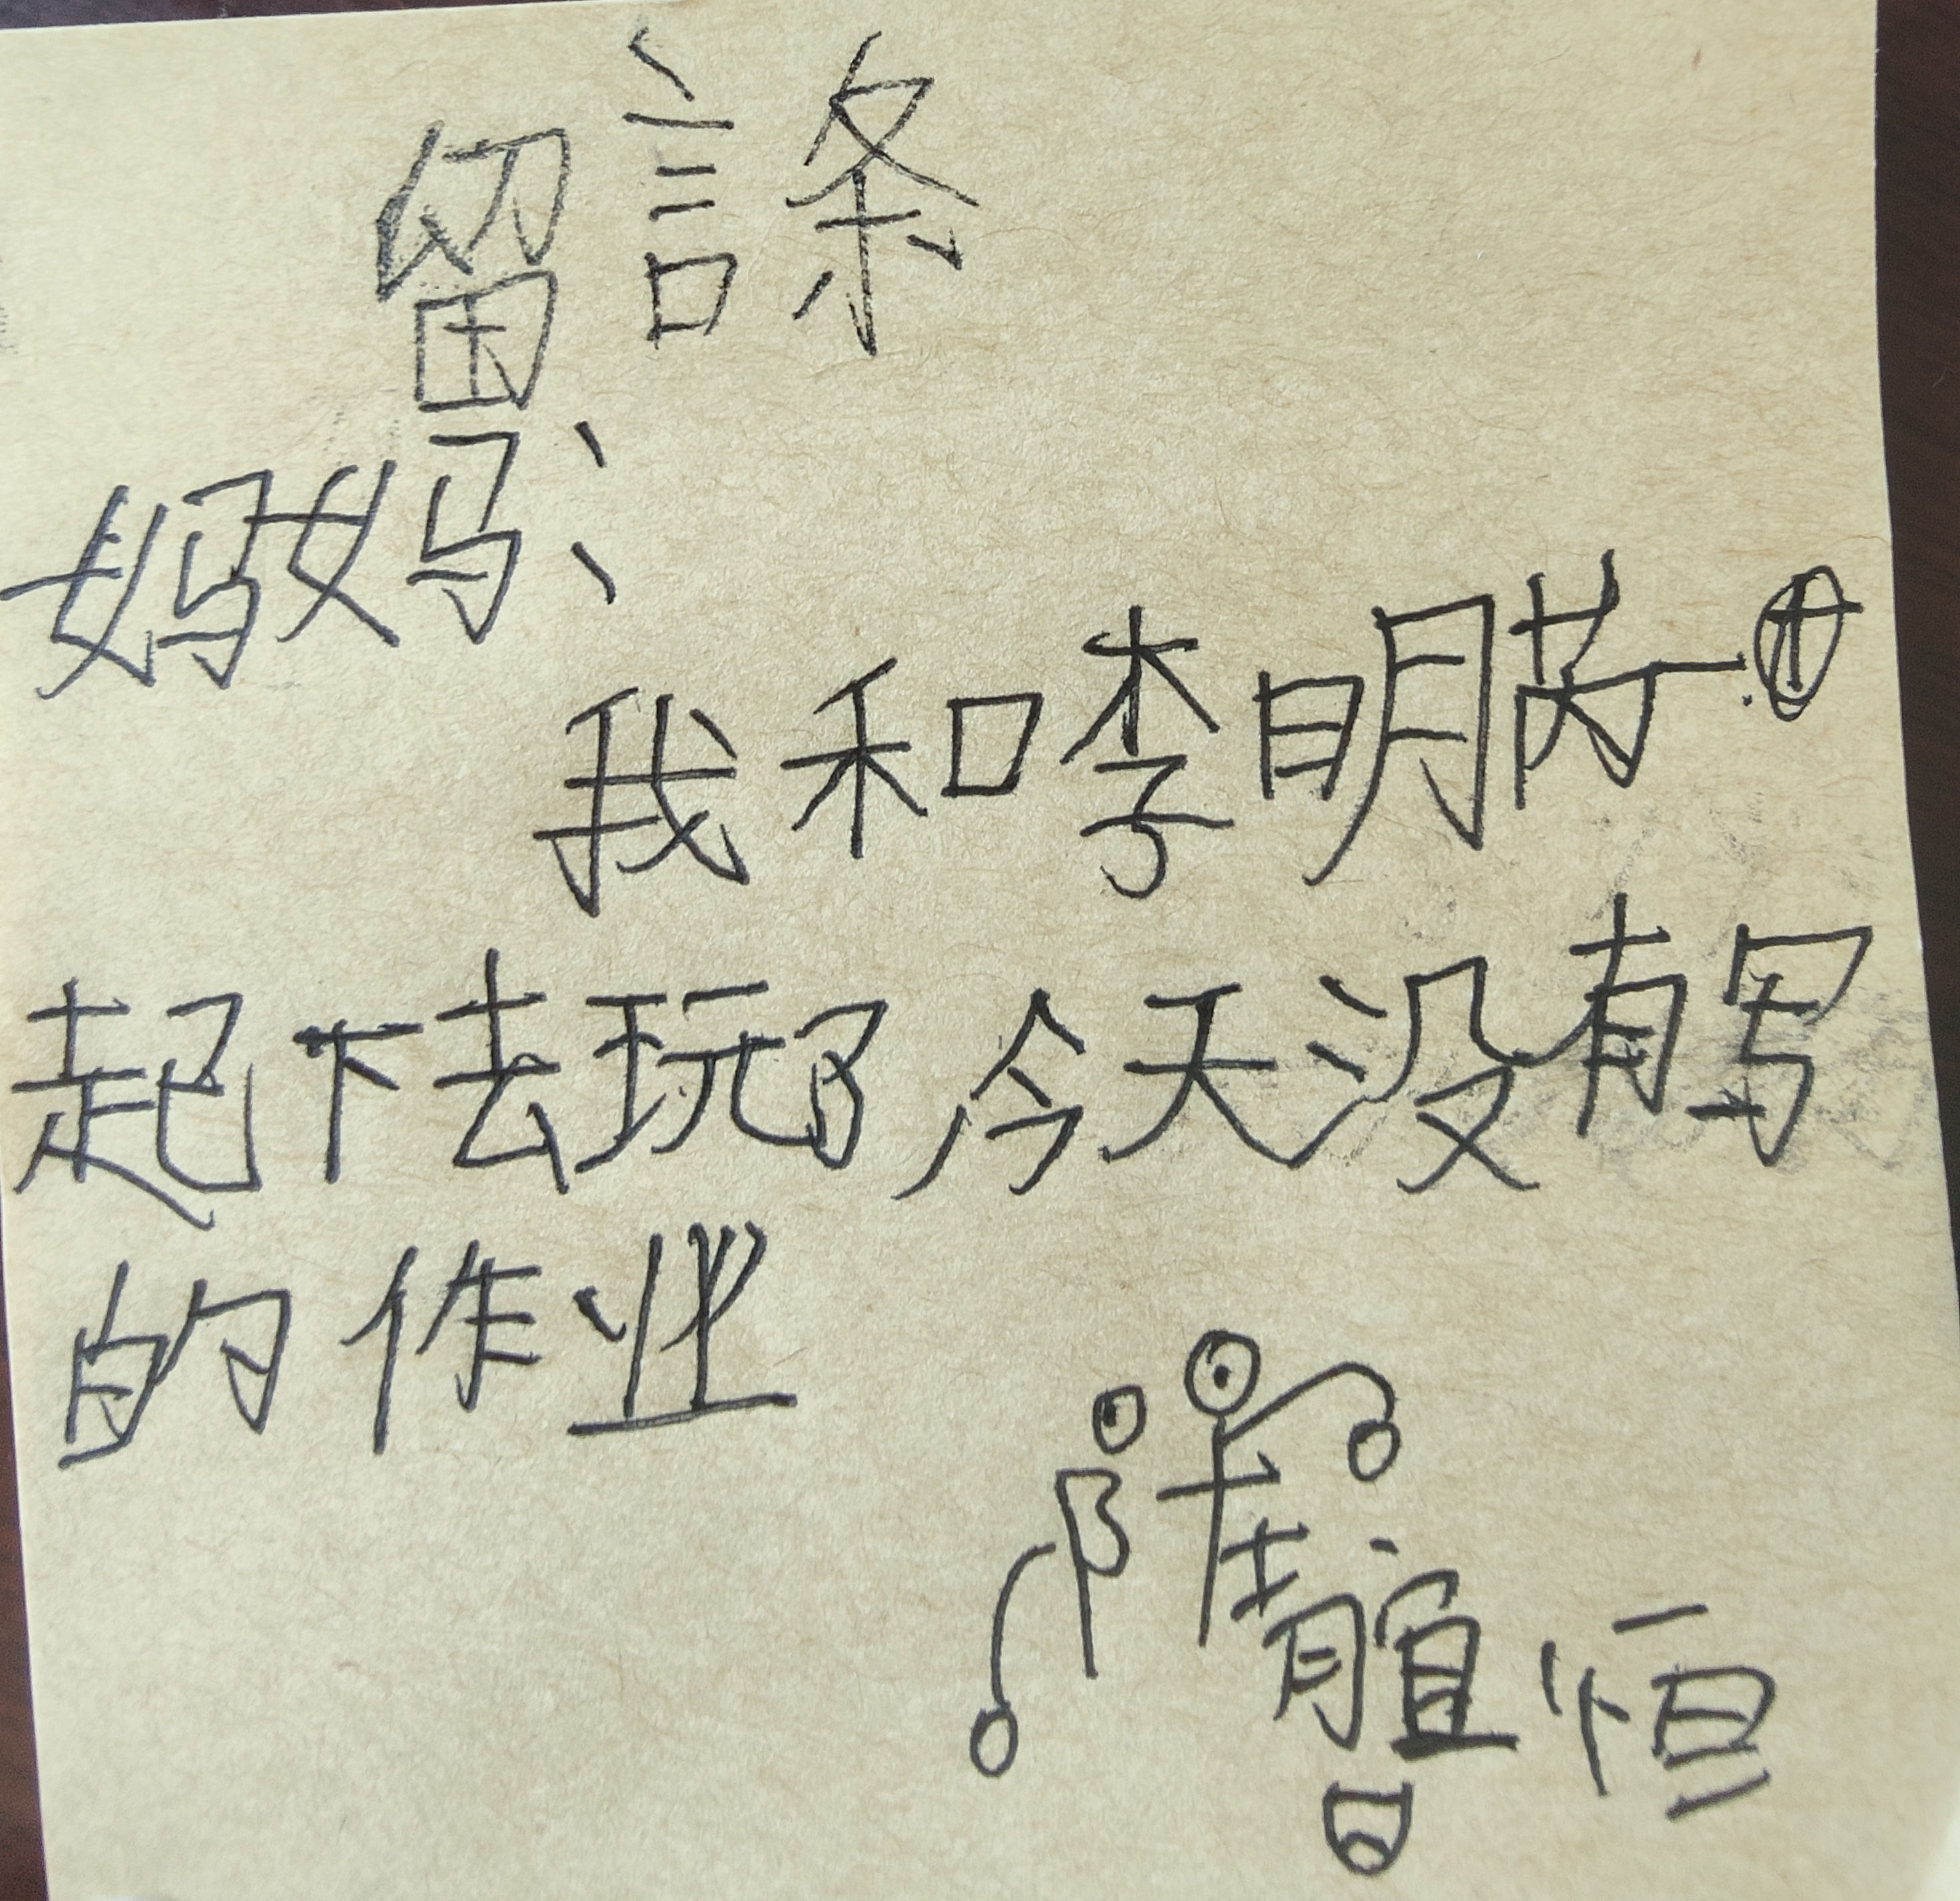 留言条
妈妈:
我和李明芮一
起下去玩了今天没有写
的作业
陈靖宜恒